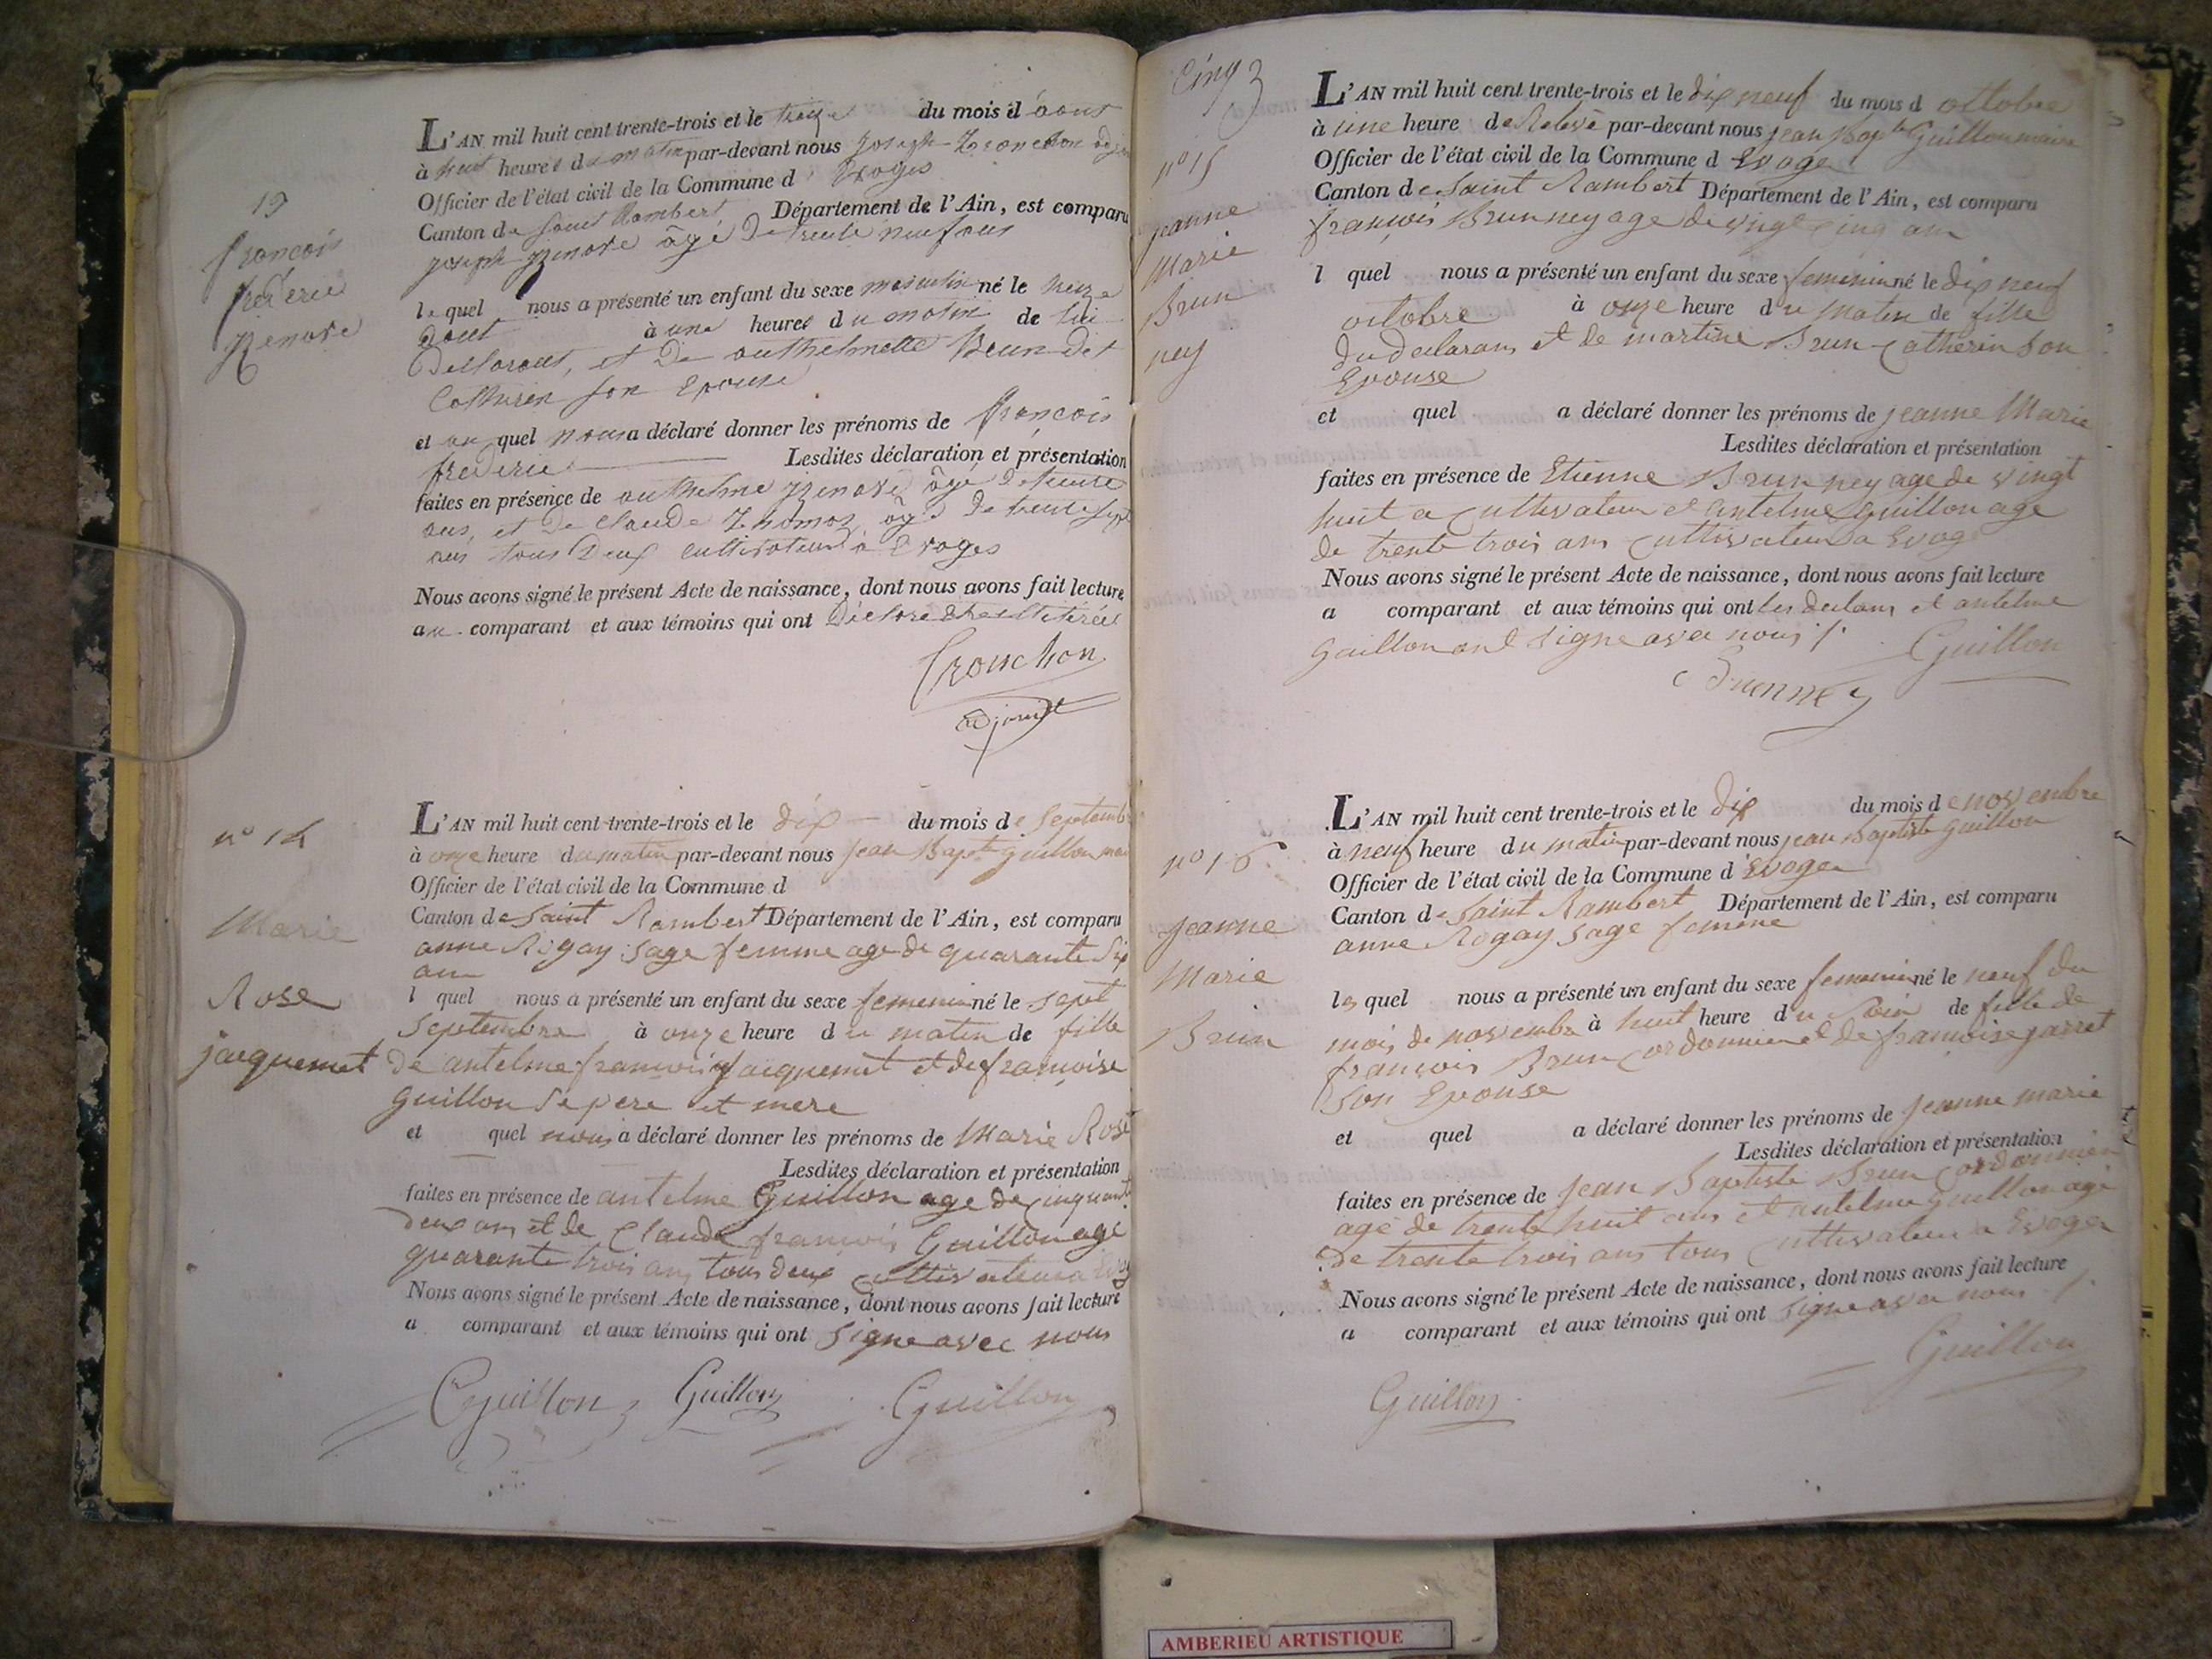 19
françois
frederic
L'AN mil huit cent trente-trois et le treize du mois d'aout
à huit heures du matin par-devant nous joseph Tronchon
Officier de l'état civil de la Commune d Evoges
Canton de Saint Rambert Département de l'Ain, est comparu
joseph âgé de trente neuf ans
lequel nous a présenté un enfant du sexe masculin né le
aout à une heures du matin de lui
Declarant, et De anthelmette Brun det
Catherin son Epouse
et au quel nous a déclaré donner les prénoms de françois
frederic Lesdites déclaration et présentation
faites en présence de anthelme âgé de trente
ans, et De Claude Thomas âgé De trente sept
ans tous Deux cultivateurs à Evoges
Nous avons signé le présent Acte de naissance, dont nous avons fait lecture
au comparant et aux témoins qui ont
Tronchon
adjoint
n° 14
Marie
Rose
jacquemet
L'AN mil huit cent trente-trois et le dix du mois de Septemb
à onze heure du matin par-devant nous jean Bapt guillon
Officier de l'état civil de la Commune d
Canton de Saint Rambert Département de l'Ain, est comparu
anne Rigay Sage femme age de quarante Six
ans
l quel nous a présenté un enfant du sexe femenin né le sept
Septembre à onze heure du matin de fille
de antelme françois jacquemet et de françoise
Guillon Se pere et mere
et quel nous a déclaré donner les prénoms de Marie Rose
Lesdites déclaration et présentation
faites en présence de antelme Guillon age de cinquante
deux ans et de Claude françois Guillon age
quarante trois ans tous deux cultivateur a
Nous avons signé le présent Acte de naissance, dont nous avons fait lecture
a comparant et aux témoins qui ont Signe avec nous
Guillon Guillon Guillon
Cinq
n° 15
jeanne
Marie
Brun
ney
L'AN mil huit cent trente-trois et le dix neuf du mois d octobre
à une heure de Relevé par-devant nous jean Bapte Guillon maire
Officier de l'état civil de la Commune d Evoge
Canton de Saint Rambert Département de l'Ain, est comparu
françois Brunney age de vingt cinq ans
l quel nous a présenté un enfant du sexe femenin né le dix neuf
octobre à onze heure du matin de fille
du declarans et de martine Brun Catherin Son
Epouse
et quel a déclaré donner les prénoms de jeanne Marie
Lesdites déclaration et présentation
faites en présence de Etienne Brunney age de vingt
huit a cultivateur et antelme Guillon age
de trente trois ans cultivateur a Evoge
Nous avons signé le présent Acte de naissance, dont nous avons fait lecture
a comparant et aux témoins qui ont les declans et antelme
guillon ont Signe avec nous
Guillon
Brunney
n° 16
jeanne
Marie
Brun
L'AN mil huit cent trente-trois et le dix du mois de novembre
à neuf heure du matin par-devant nous jean Baptiste guillon
Officier de l'état civil de la Commune d'Evoges
Canton de Saint Rambert Département de l'Ain, est comparu
anne Rogay Sage femme
les quel nous a présenté un enfant du sexe femenin né le neuf du
mois de novembre à huit heure du Soir de fille de
françois Brun cordonnier et de françoise jarret
Son Epouse
et quel a déclaré donner les prénoms de jeanne marie
Lesdites déclaration et présentation
faites en présence de jean Baptiste Brun cordonnier
age de trente huit ans et antelme guillon age
de trente trois ans tous cultivateur a Evoges
Nous avons signé le présent Acte de naissance, dont nous avons fait lecture
a comparant et aux témoins qui ont Signe avec nous
Guillon
Guillon
AMBERIEU ARTISTIQUE